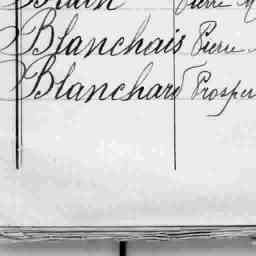 Pierre
Blanchais Pierre
Blanchard Prosper